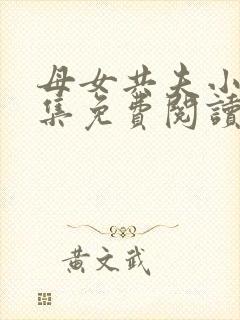 母女共夫小
集免費閱讀
黃文武